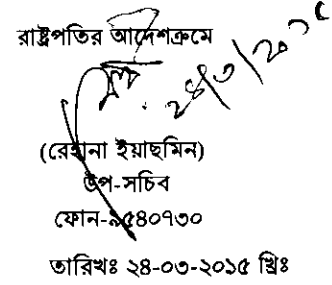 রাষ্ট্রপতির আদেশক্রমে
২৪/৩/২০১৫
(রেহানা ইয়াছমিন)
উপ-সচিব
ফোন-৯৫৪০৭৩০
তারিখঃ ২৪-০৩-২০১৫ খ্রিঃ